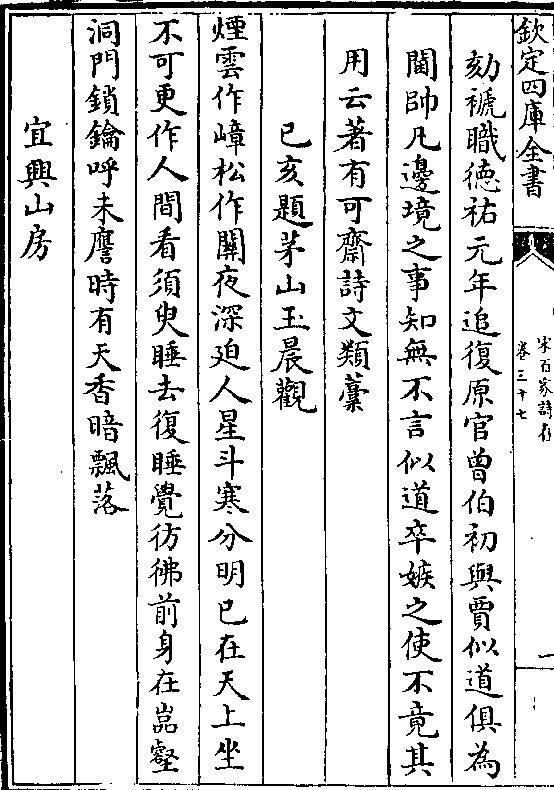 欽定四庫全書
宋百家詩存
卷三十七
一
劾褫職德祐元年追復原官曾伯初與賈似道俱為
閫帥凡邊境之事知無不言似道卒嫉之使不竟其
用云著有可齋詩文類藁
已亥題茅山玉晨觀
煙雲作嶂松作關夜深廹人星斗寒分明已在天上坐
不可更作人間看須臾睡去復睡覺彷彿前身在嵓壑
洞門鎖鑰呼未譍時有天香暗飄落
宜興山房